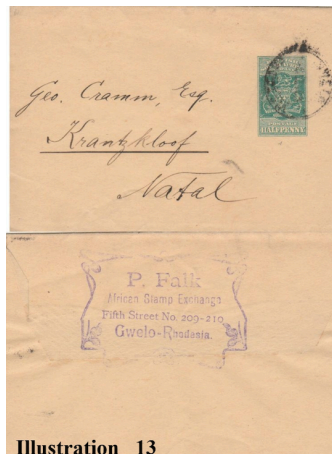 Geo. Cramm, Esq.
Krantzkloof
Natal
POSTAGE
HALFPENNY
P. Falk
African Stamp Exchange
Fifth Street No. 209-210
Gwelo-Rhodesia.
Illustration 13